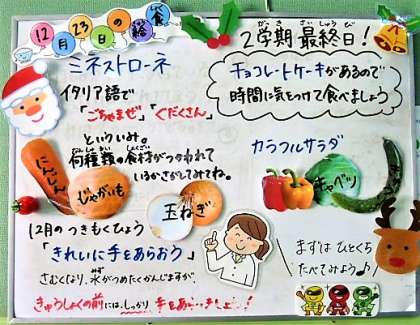 12月23日の給食
2学期 最終日!
が き さいしゅう び
ミネストローネ
イタリア語で
「ごちゃまぜ」「ぐだくさん」
といういみ。
何種類の食材がつかわれて
いるかさがしてみてね。
にんじん
じゃがいも
玉ねぎ
チョコレートケーキがあるので
時間に気をつけて食べましょう
カラフルサラダ
キャベツ
12月のつきもくひょう
「きれいに手をあらおう」
さむくなり、水がつめたくかんじますが、
きゅうしょくの前には、しっかり 手をあらいましょう!
まずはひとくち
たべてみよう♪